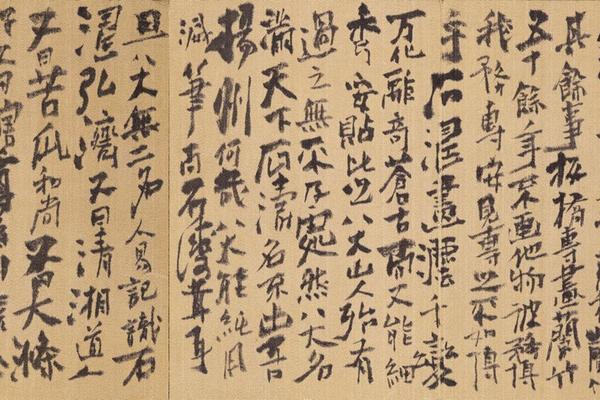 其餘事板橋專畫蘭竹
五十餘年不画他物彼務博
我務專安見專之不如博
乎石濤畫法千變
万化離奇蒼古而又能細
秀安貼比之八大山人殆有
過之無不及處然八大名
滿天下石濤名不出吾
揚州何哉八大能純用
減筆而石濤茸耳
且八大無二名人易記識石
濤弘濟又曰清湘道人
又曰苦瓜和尚又曰大滌
子又曰瞎尊者